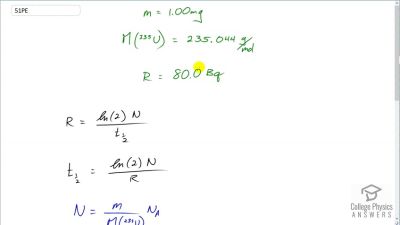 51PE
m = 1.00 mg
M(²³⁵U) = 235.044 g/mol
R = 80.0 Bq
R = ln(2) N / t½
t½ = ln(2) N / R
N = m / M(²³⁵U) N_A
College Physics
ANSWERS